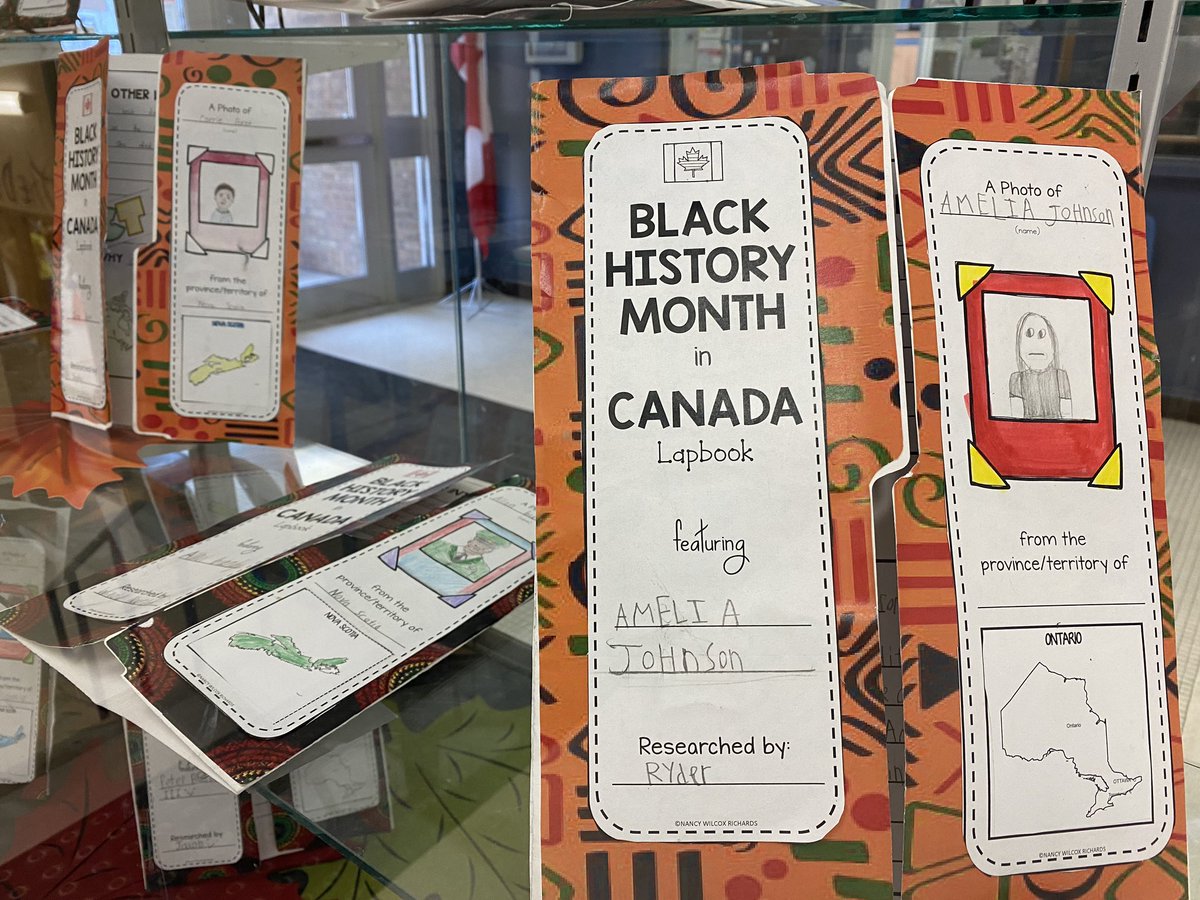 BLACK
HISTORY
MONTH
in
CANADA
Lapbook
featuring
AMELIA
JOHNSON
Researched by:
Ryder
©NANCY WILCOX RICHARDS
A Photo of
AMELIA JOHNSON
(name)
from the
province/territory of
ONTARIO
Ontario
OTTAWA
©NANCY WILCOX RICHARDS
BLACK
HISTORY
MONTH
in
CANADA
Lapbook
OTHER
A Photo of
(name)
from the
province/territory of
Nova Scotia
NOVA SCOTIA
BLACK
HISTORY
MONTH
in
CANADA
Lapbook
featuring
Researched by:
from the
province/territory of
Nova Scotia
NOVA SCOTIA
Researched by
Jacob